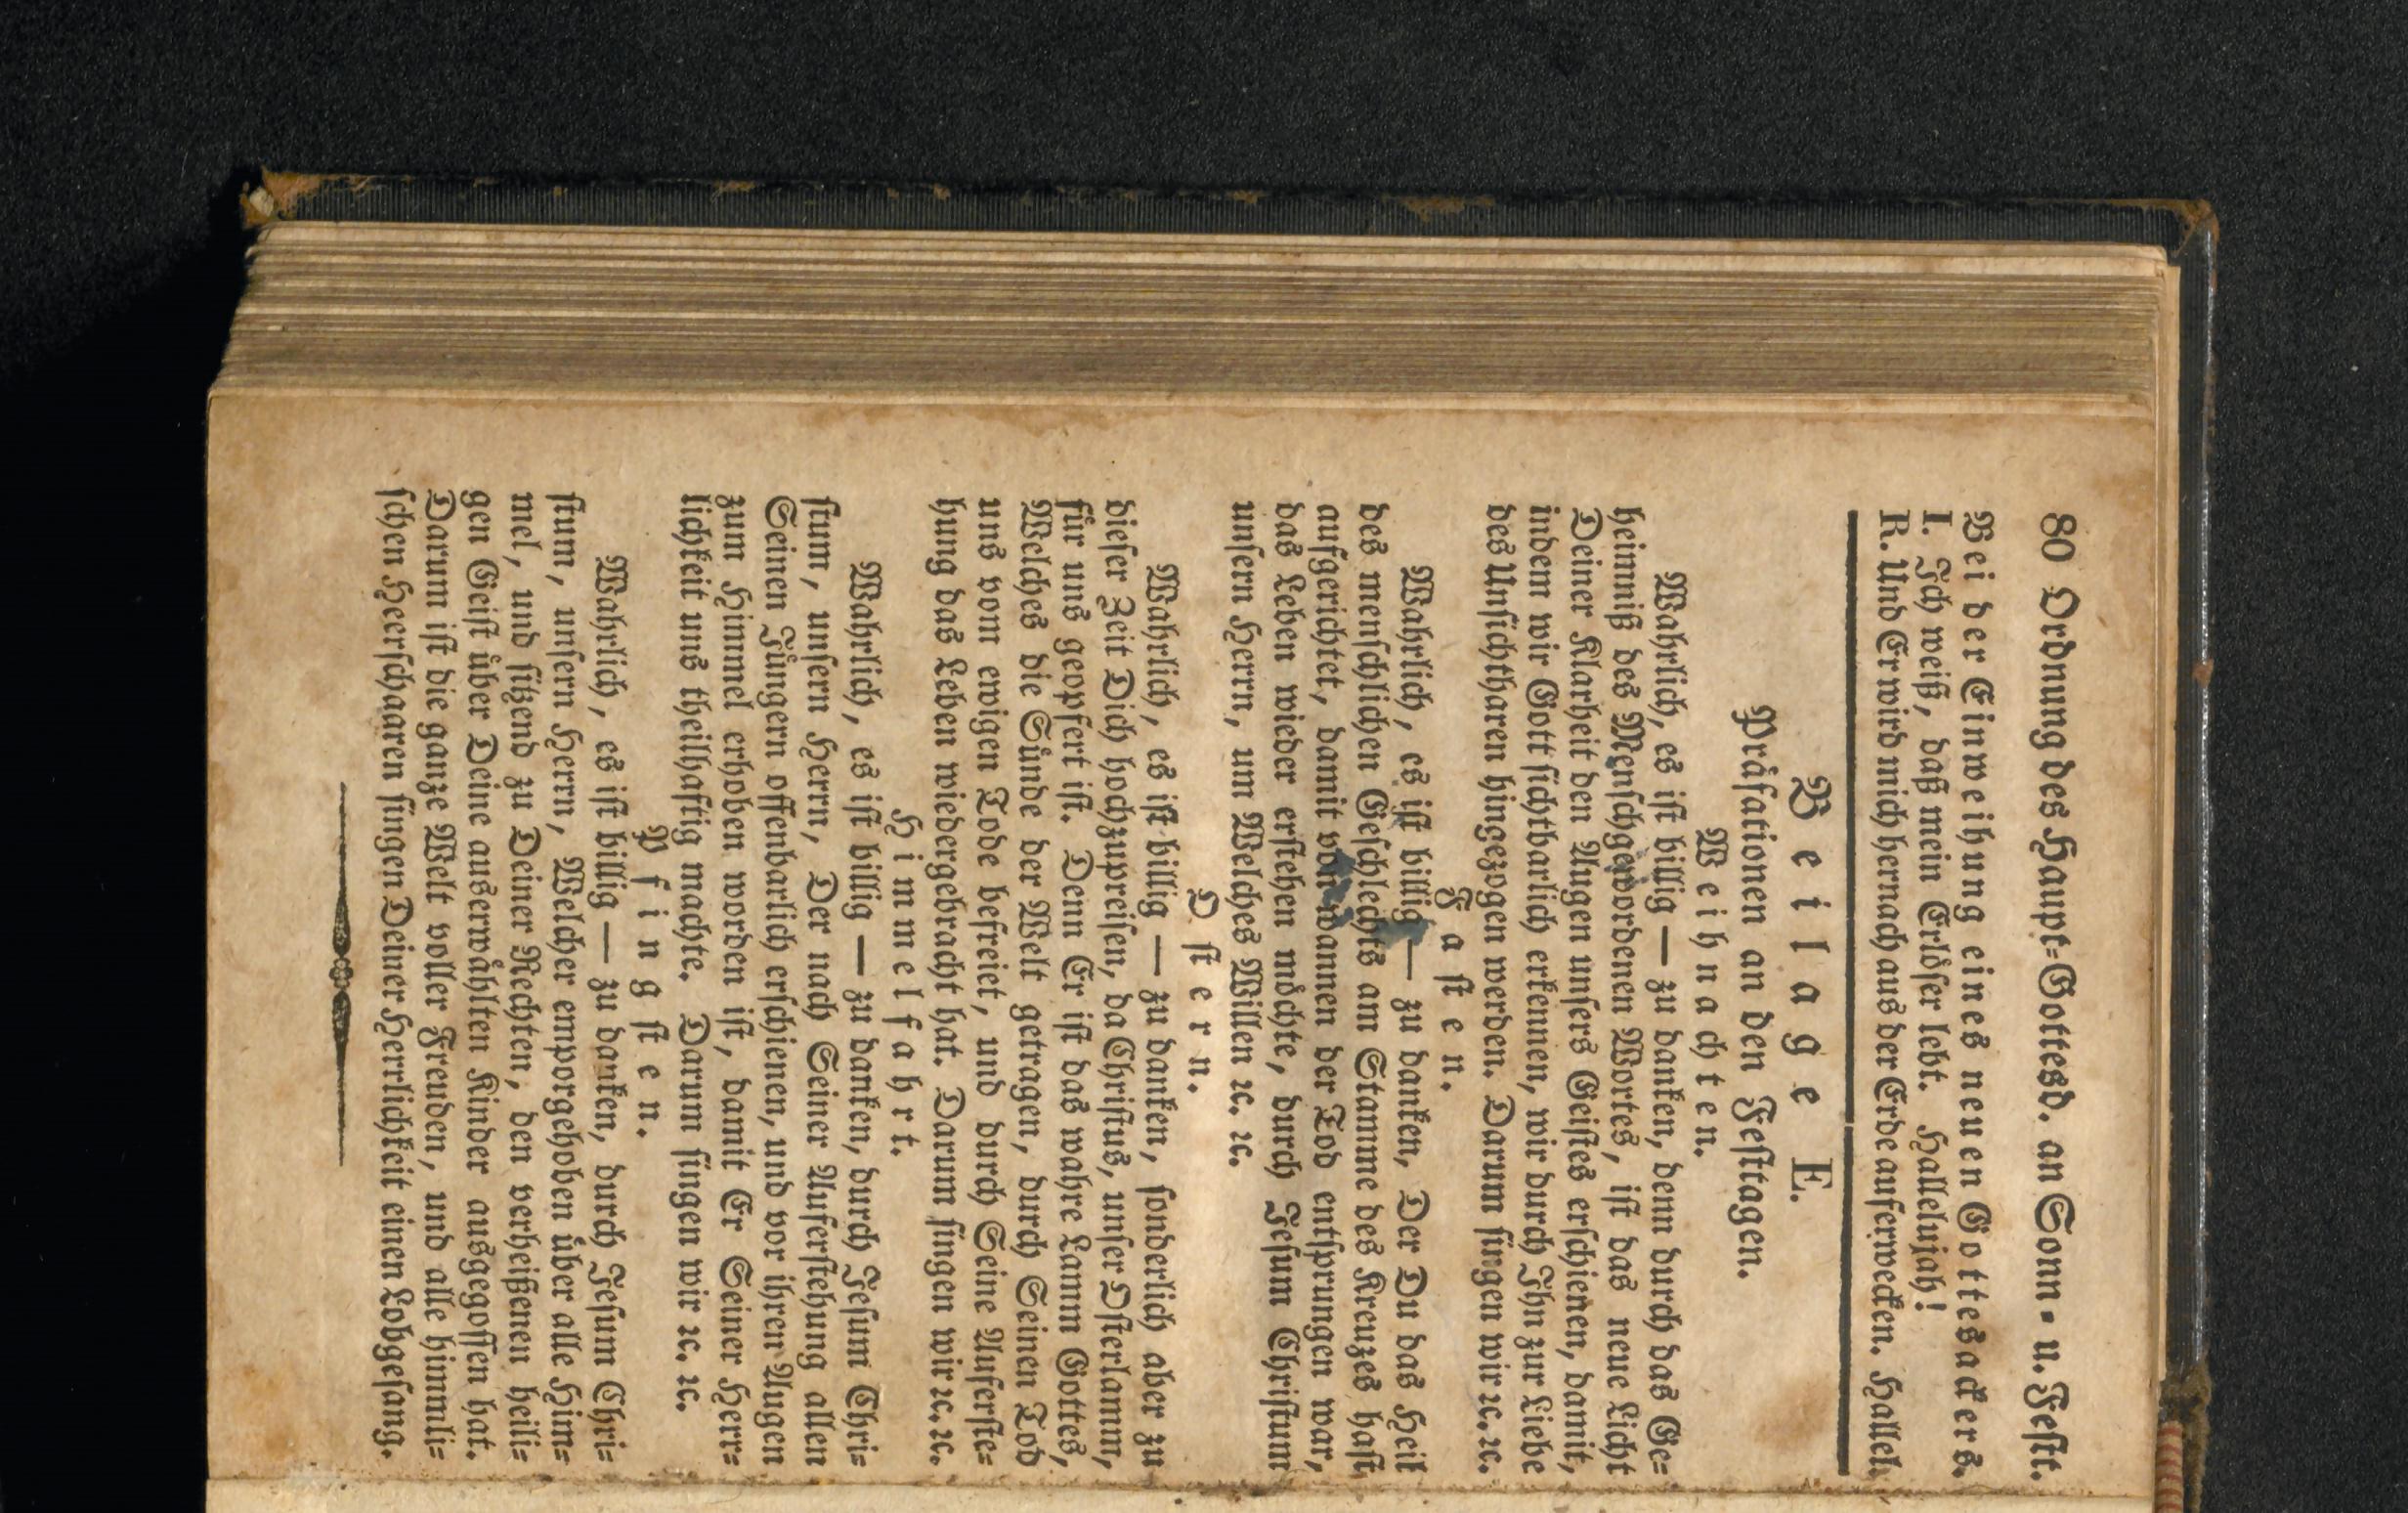 80 Ordnung des Haupt-Gottesd. an Sonn- u. Festt.
Bei der Einweihung eines neuen Gottesackers.
I. Ich weiß, daß mein Erlöser lebt. Hallelujah!
R. Und Er wird mich hernach aus der Erde auferwecken. Hallel.
Beilage E.
Präfationen an den Festtagen.
Weihnachten.
Wahrlich, es ist billig — zu danken, denn durch das Ge-
heimniß des Menschgewordenen Wortes, ist das neue Licht
Deiner Klarheit den Augen unsers Geistes erschienen, damit,
indem wir Gott sichtbarlich erkennen, wir durch Ihn zur Liebe
des Unsichtbaren hingezogen werden. Darum singen wir ꝛc. ꝛc.
Fasten.
Wahrlich, es ist billig — zu danken, Der Du das Heil
des menschlichen Geschlechts am Stamme des Kreuzes hast
aufgerichtet, damit von wannen der Tod entsprungen war,
das Leben wieder erstehen möchte, durch Jesum Christum
unsern Herrn, um Welches Willen ꝛc. ꝛc.
Ostern.
Wahrlich, es ist billig — zu danken, sonderlich aber zu
dieser Zeit Dich hochzupreisen, da Christus, unser Osterlamm,
für uns geopfert ist. Denn Er ist das wahre Lamm Gottes,
Welches die Sünde der Welt getragen, durch Seinen Tod
uns vom ewigen Tode befreiet, und durch Seine Auferste-
hung das Leben wiedergebracht hat. Darum singen wir ꝛc. ꝛc.
Himmelfahrt.
Wahrlich, es ist billig — zu danken, durch Jesum Chri-
stum, unsern Herrn, Der nach Seiner Auferstehung allen
Seinen Jüngern offenbarlich erschienen, und vor ihren Augen
zum Himmel erhoben worden ist, damit Er Seiner Herr-
lichkeit uns theilhaftig machte. Darum singen wir ꝛc. ꝛc.
Pfingsten.
Wahrlich, es ist billig — zu danken, durch Jesum Chri-
stum, unsern Herrn, Welcher emporgehoben über alle Him-
mel, und sitzend zu Deiner Rechten, den verheißenen heili-
gen Geist über Deine auserwählten Kinder ausgegossen hat.
Darum ist die ganze Welt voller Freuden, und alle himmli-
schen Heerschaaren singen Deiner Herrlichkeit einen Lobgesang.